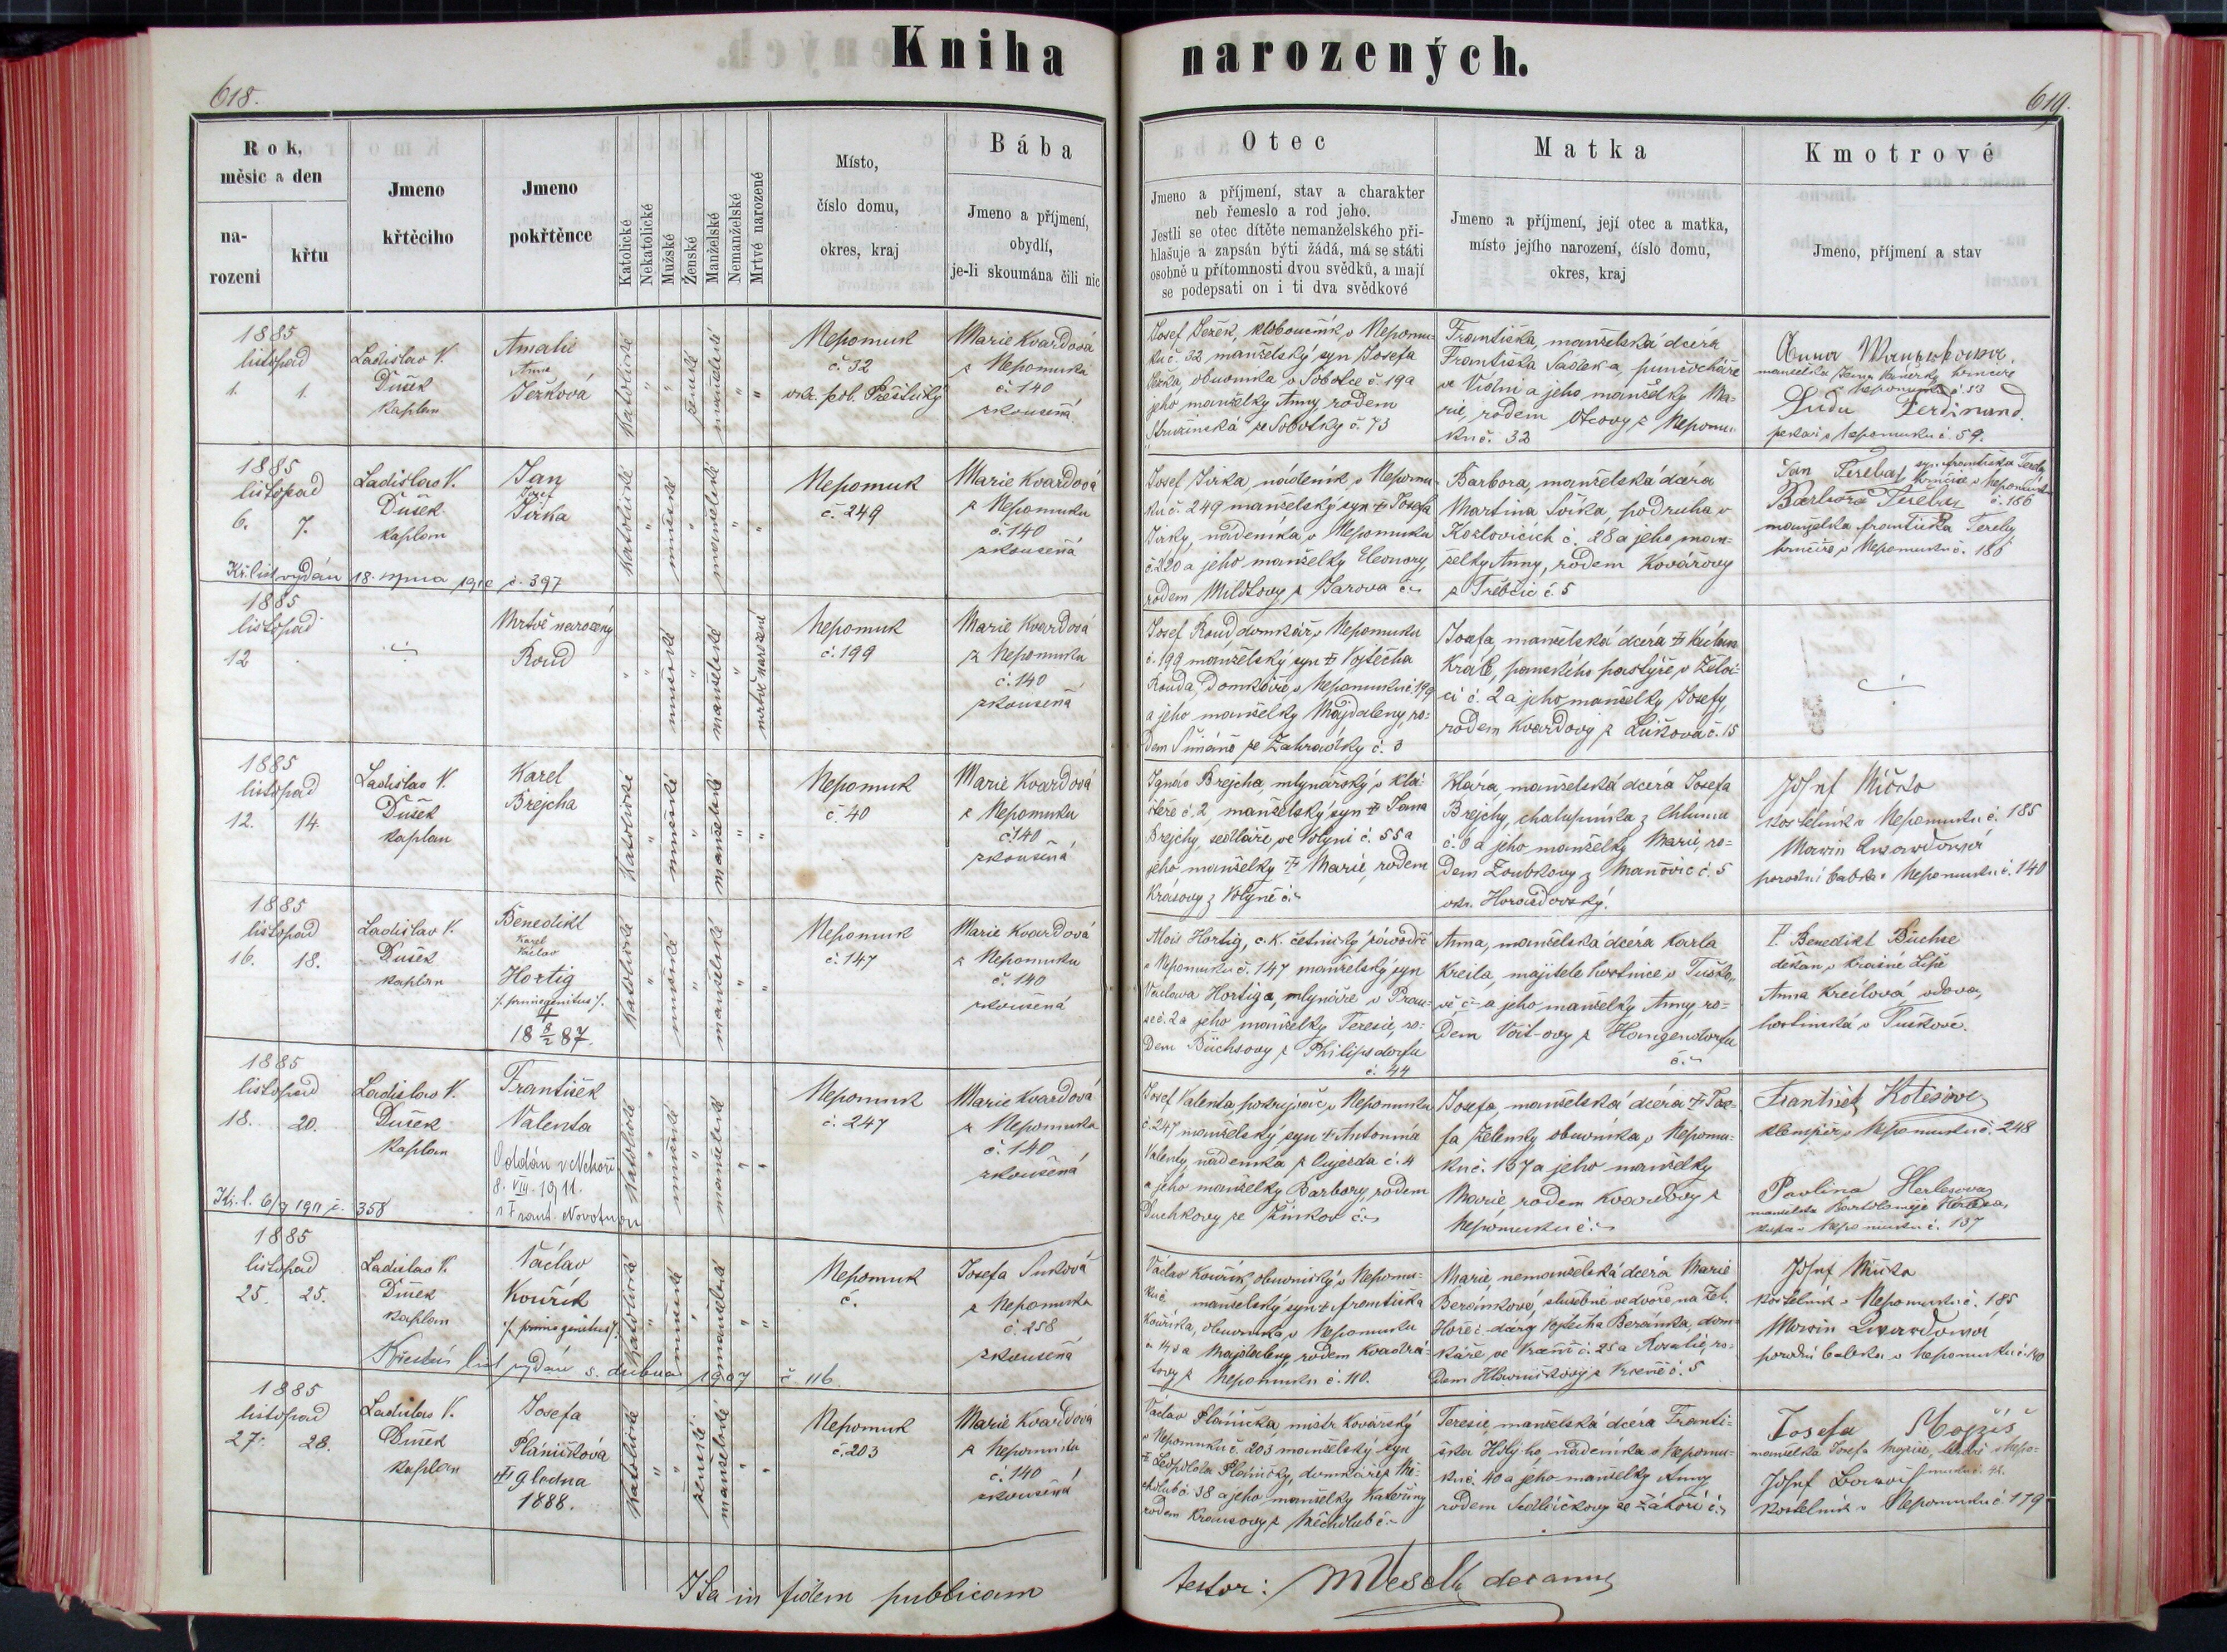 Kniha narozených.
618.
619.
Rok, měsíc a den
narození
křtu
Jmeno křtěcího
Jmeno pokřtěnce
Katolické
Nekatolické
Mužské
Ženské
Manželské
Nemanželské
Mrtvé narozené
Místo,
číslo domu,
okres, kraj
Bába
Jmeno a příjmení,
obydlí,
je-li skoumána čili nic
Otec
Jmeno a příjmení, stav a charakter
neb řemeslo a rod jeho.
Jestli se otec dítěte nemanželského při-
hlašuje a zapsán býti žádá, má se státi
osobně u přítomnosti dvou svědků, a mají
se podepsati on i ti dva svědkové
Matka
Jmeno a příjmení, její otec a matka,
místo jejího narození, číslo domu,
okres, kraj
Kmotrové
Jmeno, příjmení a stav
1885
listopad
1. 1.
Ladislav V.
Dušek
kaplan
Amalie
Anna
Ježková
katolické
ženské
manželské
Nepomuk
č. 32
okr. pol. Přeštický
Marie Kvardová
z Nepomuka
č. 140
zkoušená
Josef Ježek, kloboučník v Nepomu-
ku č. 32 manželský syn Josefa
Ježka, obuvníka v Sobotce č. 19 a
jeho manželky Anny, rodem
ze Sobotky č. 73
Františka, manželská dcera
Františka Sádeka, punčocháře
ve Vídni a jeho manželky Ma-
rie, rodem z Nepomu-
ku č. 32
Anna
manželka Jana
z Nepomuka č. 53
Ferdinand
pekař z Nepomuku č. 59.
1885
listopad
6. 7.
Ladislav V.
Dušek
kaplan
Jan
Josef
Jirka
katolické
mužské
manželské
Nepomuk
č. 249
Marie Kvardová
z Nepomuku
č. 140
zkoušená
Kř. list vydán 18. srpna 1910 č. 397
Josef Jirka, nádeník v Nepomu-
ku č. 249 manželský syn ✝ Josefa
Jirky, nádeníka v Nepomuku
č. 220 a jeho manželky Eleonory,
rodem z Žarova č.
Barbora, manželská dcera
Martina Šíška, podruha v
Kozlovicích č. 28 a jeho man-
želky Anny, rodem Kovářovy
z Třebčic č. 5
Jan Tereba, syn Františka Tereby
hrnčíře v Nepomuku
č. 186
Barbora Tereba
manželka Františka Tereby
hrnčíře v Nepomuku č. 186
1885
listopad
12
Mrtvě narozený
Roud
mužské
manželské
mrtvě narozené
Nepomuk
č. 199
Marie Kvardová
z Nepomuku
č. 140
zkoušená
Josef Roud domkář v Nepomuku
č. 199 manželský syn ✝ Vojtěcha
Rouda, domkáře v Nepomuku č. 199
a jeho manželky Magdaleny, ro-
dem ze Zahrádky č. 3
Josefa, manželská dcera ✝
Krále, panského pastýře v
č. 2 a jeho manželky Josefy,
rodem Kvardovy z č. 15
1885
listopad
12. 14.
Ladislav V.
Dušek
kaplan
Karel
Brejcha
katolické
mužské
manželské
Nepomuk
č. 40
Marie Kvardová
z Nepomuku
č. 140
zkoušená
Ignác Brejcha mlynářský v Klá-
šteře č. 2, manželský syn ✝ Jana
Brejchy sedláře, ve Volyni č. 55 a
jeho manželky ✝ Marie, rodem
Krásovy z Volyně č.
Klára, manželská dcera Josefa
Brejchy, chalupníka z Chlumu
č. 6 a jeho manželky Marie, ro-
dem Zoubkovy z Maňovic č. 5
okr. Horažďovský.
Josef
kostelník v Nepomuku č. 185
Marie Kvardová
porodní babka v Nepomuku č. 140
1885
listopad
16. 18.
Ladislav V.
Dušek
kaplan
Benedikt
Karel
Václav
Hortig
/: primogenitus :/.
✝
18 8/2 87.
katolické
mužské
manželské
Nepomuk
č. 147
Marie Kvardová
z Nepomuku
č. 140
zkoušená
Alois Hortig, c. k. četnický závodčí
v Nepomuku č. 147, manželský syn
Václava Hortiga, mlynáře v
č. 2 a jeho manželky Teresie, ro-
dem Büchsovy z Philipsdorfu
č. 44
Anna, manželská dcera Karla
Kreila, majitele hostince v
č. a jeho manželky Anny, ro-
dem Voit-ovy z Hangendorfu
č.
P. Benedikt Büchse
děkan v Krásné Lípě
Anna Kreilová, vdova,
hostinská v
1885
listopad
18. 20.
Ladislav V.
Dušek
kaplan
František
Valenta
Oddán v
8. VIII. 1911.
s Frant. Novotnou
Kř. l. 6/9 1911 č. 358
katolické
mužské
manželské
Nepomuk
č. 247
Marie Kvardová
z Nepomuku
č. 140
zkoušená
Josef Valenta pokrývač v Nepomuku
č. 247 manželský syn ✝ Antonína
Valenty, nádeníka z Oujezda č. 4
a jeho manželky Barbory, rodem
Duchkovy ze Žinkov č.
Josefa, manželská dcera ✝ Jose-
fa Zelenky, obuvníka v Nepomu-
ku č. 137 a jeho manželky
Marie, rodem Kvardovy z
Nepomuku č.
František
klempíř v Nepomuku č. 248
Pavlina Herlesova
manželka Bartoloměje
kupce v Nepomuku č. 137
1885
listopad
25. 25.
Ladislav V.
Dušek
kaplan
Václav
Kouřík
/: primogenitus :/
katolické
mužské
manželské
Křestní list vydán 5. dubna 1907 č 116.
Nepomuk
č.
Josefa
z Nepomuka
č. 258
zkoušená
Václav Kouřík, obuvnický v Nepomu-
ku č. manželský syn ✝ Františka
Kouříka, obuvníka v Nepomuku
č. 145 a Magdaleny, rodem
z Nepomuku č. 110.
Marie, nemanželská dcera Marie
Beránkové, služebné ve dvoře na Zel.
Hoře č. dcery Vojtěcha Beránka, dom-
káře, ve č. 25 a Rosalie, ro-
dem z č. 5
Josef
kostelník v Nepomuku č. 185
Marie Kvardová
porodní babka v Nepomuku č. 140
1885
listopad
27. 28.
Ladislav V.
Dušek
kaplan
Josefa
Pláničková
✝ 9 ledna
1888.
katolické
ženské
manželské
Nepomuk
č. 203
Marie Kvardová
z Nepomuku
č. 140
zkoušená
Václav Plánička, mistr kovářský
v Nepomuku č. 203 manželský syn
✝ Leopolda Pláničky, domkáře z Mě-
cholub č. 38 a jeho manželky Kateřiny,
rodem Krausovy z Měcholub č.
Teresie, manželská dcera Franti-
ška Holého, nádeníka v Nepomu-
ku č. 40 a jeho manželky Anny
rodem Sedláčkovy ze Záhoří č.
Josefa Mojžíš
manželka Josefa Mojžíše, z Nepo-
muku č. 42.
Josef
kostelník v Nepomuku č. 179
Ita in fidem publicam
testor: Veselý decanus